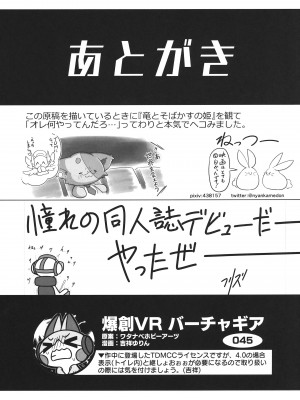 あとがき
この原稿を描いているときに『竜とそばかすの姫』を観て
「オレ何やってんだろ…」ってわりと本気でヘコみました。
ねっつー
pixiv:438157
twitter:@nyankamedon
憧れの同人誌デビューだー
やったぜー
フリズ
爆創VR バーチャギア
045
原案：ワタナベホビーアーツ
漫画：吉祥ゆりん
▼作中に登場したTDMCCライセンスですが、4.0の場合
表示(トイレ内)と絶しょおぉぉが必要になるので取り扱い
の際には気を付けましょう。(吉祥)